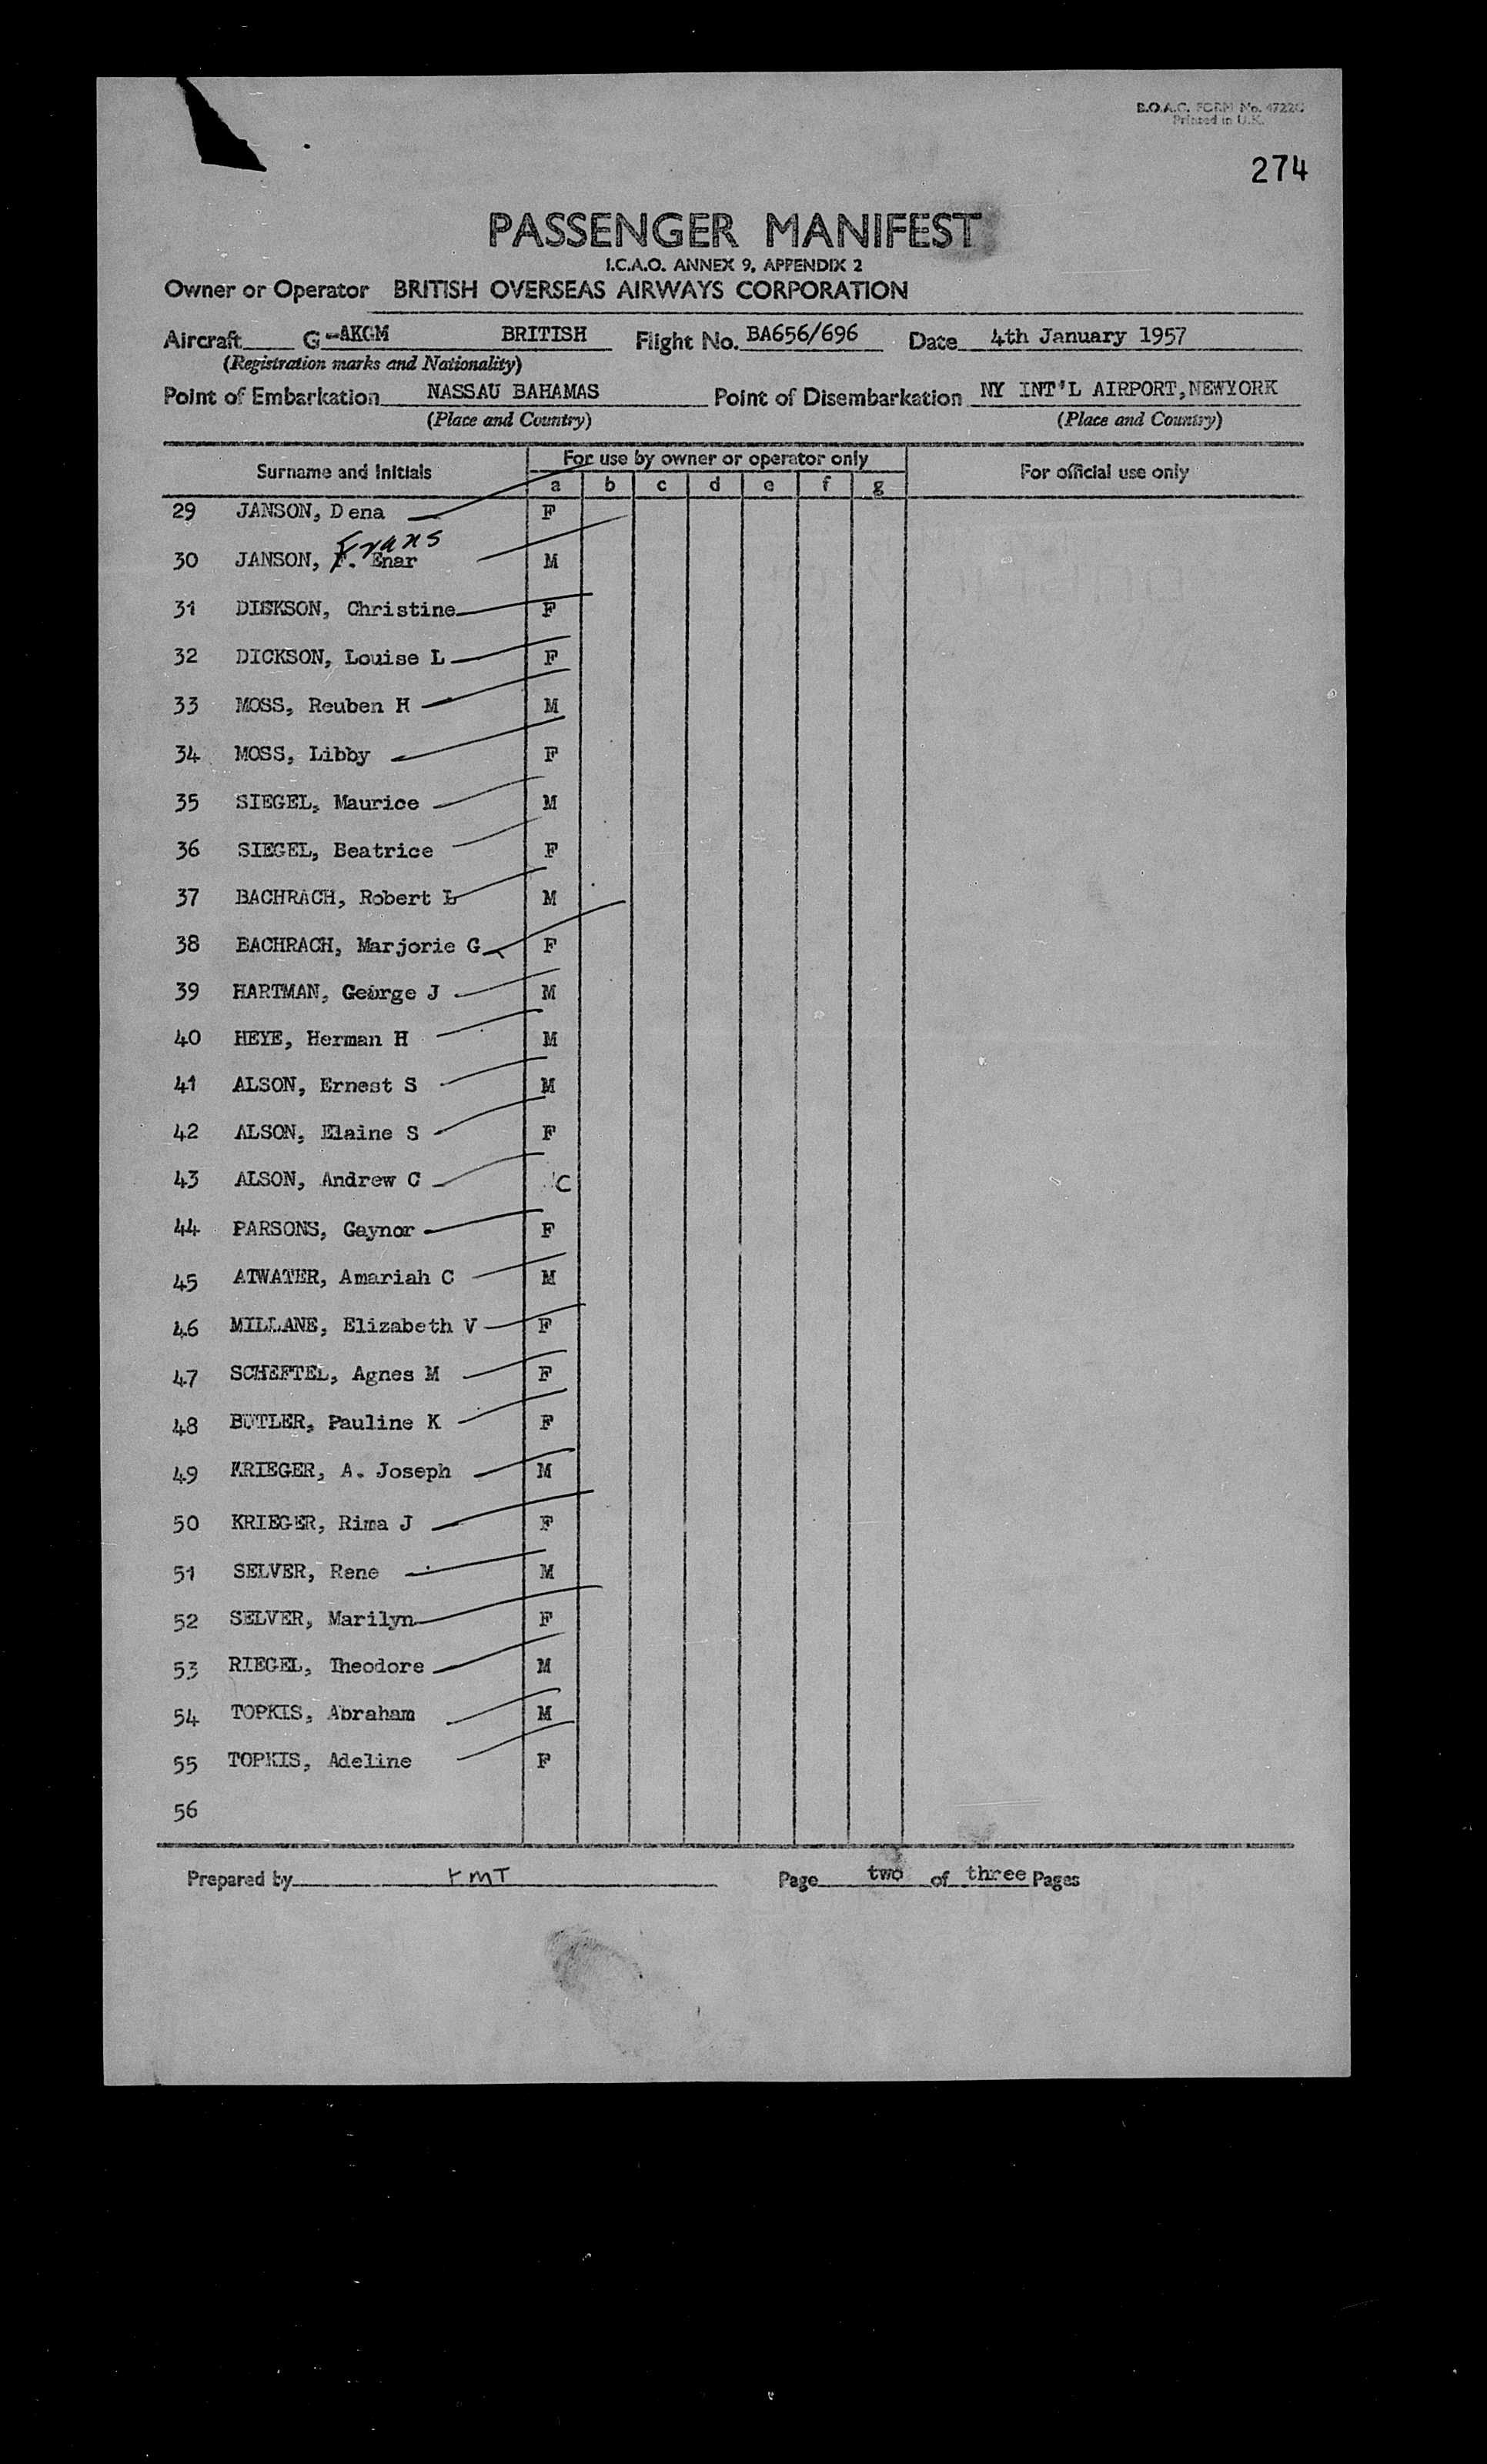 B.O.A.C. FORM No. 4722C
Printed in U.K.
274
PASSENGER MANIFEST
I.C.A.O. ANNEX 9, APPENDIX 2
Owner or Operator BRITISH OVERSEAS AIRWAYS CORPORATION
Aircraft G-AKGM BRITISH Flight No. BA656/696 Date 4th January 1957
(Registration marks and Nationality)
Point of Embarkation NASSAU BAHAMAS Point of Disembarkation NY INT'L AIRPORT, NEWYORK
(Place and Country) (Place and Country)
Surname and Initials For use by owner or operator only For official use only
a b c d e f g
29 JANSON, Dena F
Frans
30 JANSON, F. Enar M
31 DICKSON, Christine F
32 DICKSON, Louise L F
33 MOSS, Reuben H M
34 MOSS, Libby F
35 SIEGEL, Maurice M
36 SIEGEL, Beatrice F
37 BACHRACH, Robert L M
38 BACHRACH, Marjorie G F
39 HARTMAN, George J M
40 HEYE, Herman H M
41 ALSON, Ernest S M
42 ALSON, Elaine S F
43 ALSON, Andrew C C
44 PARSONS, Gaynor F
45 ATWATER, Amariah C M
46 MILLANE, Elizabeth V F
47 SCHEFTEL, Agnes M F
48 BUTLER, Pauline K F
49 KRIEGER, A. Joseph M
50 KRIEGER, Rima J F
51 SELVER, Rene M
52 SELVER, Marilyn F
53 RIEGEL, Theodore M
54 TOPKIS, Abraham M
55 TOPKIS, Adeline F
56
Prepared by rmT Page two of three Pages